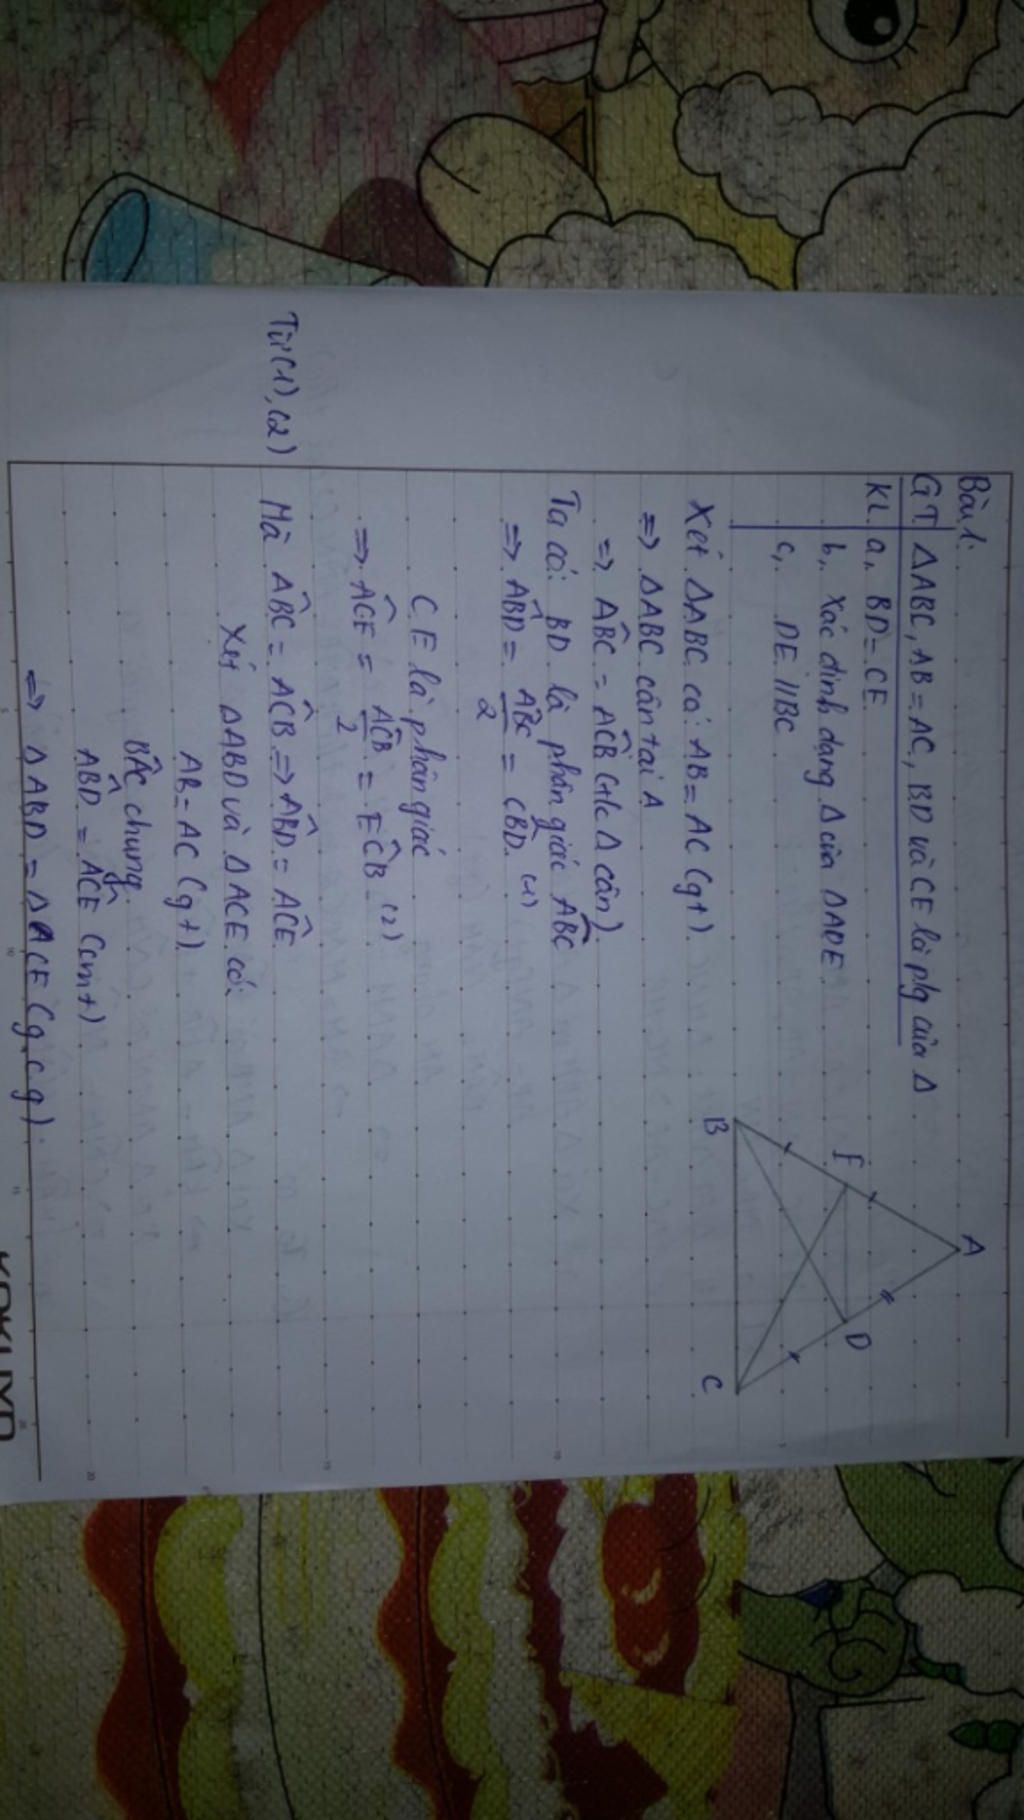 Bài 1:
GT ΔABC, AB = AC, BD và CE là p/g của Δ
KL a, BD = CE
b, Xác định dạng Δ của ΔADE
c, DE // BC
A
E
D
B
C
Xét ΔABC có: AB = AC (gt)
=> ΔABC cân tại A
=> ABC^ = ACB^ (t/c Δ cân)
Ta có: BD là phân giác ABC^
=> ABD^ = ABC^/2 = CBD^ (1)
CE là phân giác
=> ACE^ = ACB^/2 = ECB^ (2)
Từ (1), (2)
Mà ABC^ = ACB^ => ABD^ = ACE^
Xét ΔABD và ΔACE có:
AB = AC (gt)
BAC^ chung
ABD^ = ACE^ (cmt)
=> ΔABD = ΔACE (g.c.g)
KOKUYO